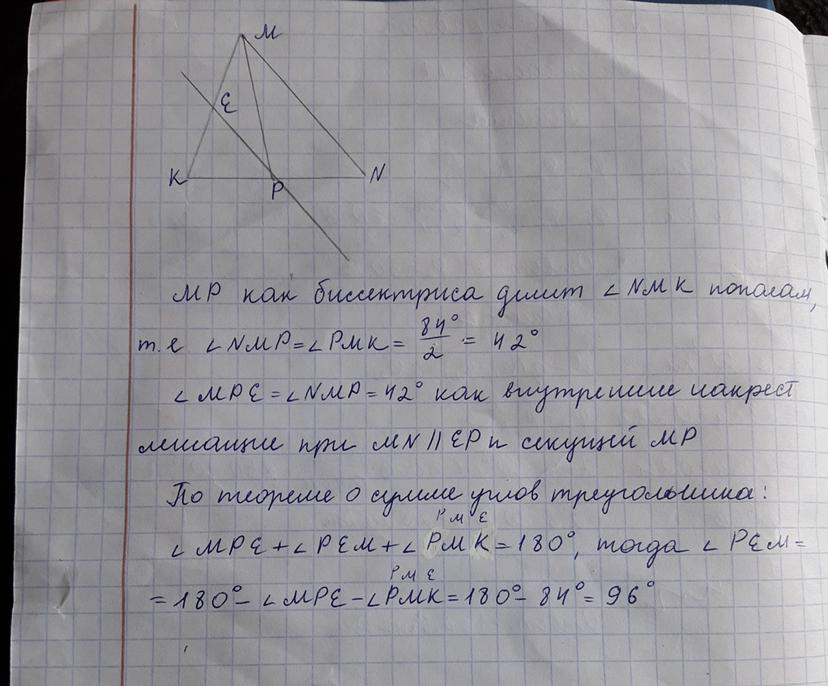 M
E
K
P
N
MP как биссектриса делит ∠NMK пополам,
т.е ∠NMP=∠PMK= 84°/2 = 42°
∠MPE=∠NMP=42° как внутренние накрест
лежащие при MN || EP и секущий MP
По теореме о сумме углов треугольника:
P M E
∠MPE+∠PEM+∠PMK=180°, тогда ∠PEM=
P M E
=180°-∠MPE-∠PMK=180°-84°=96°